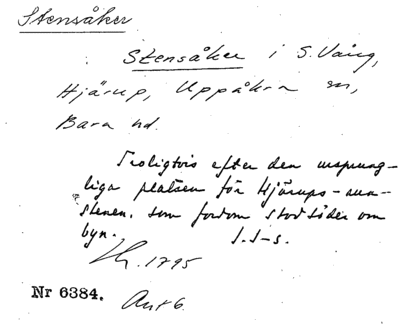 Stensåker
Stensåker i S. Vång,
Hjärup, Uppåkra sn,
Bara hd.
Troligtvis efter den ursprung-
liga platsen för Hjärups-run-
stenen, som fordom stod söder om
byn. J. J-s.
1795
Nr 6384.